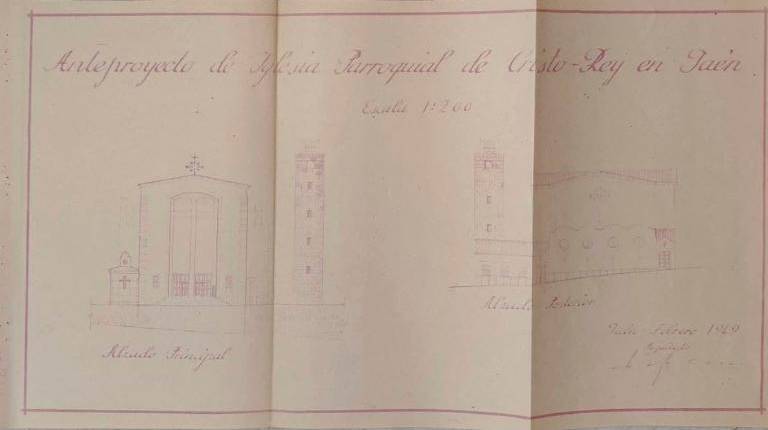 Anteproyecto de Iglesia Parroquial de Cristo-Rey en Jaén
Escala 1:200
Alzado Principal
Alzado Posterior
Febrero 1949